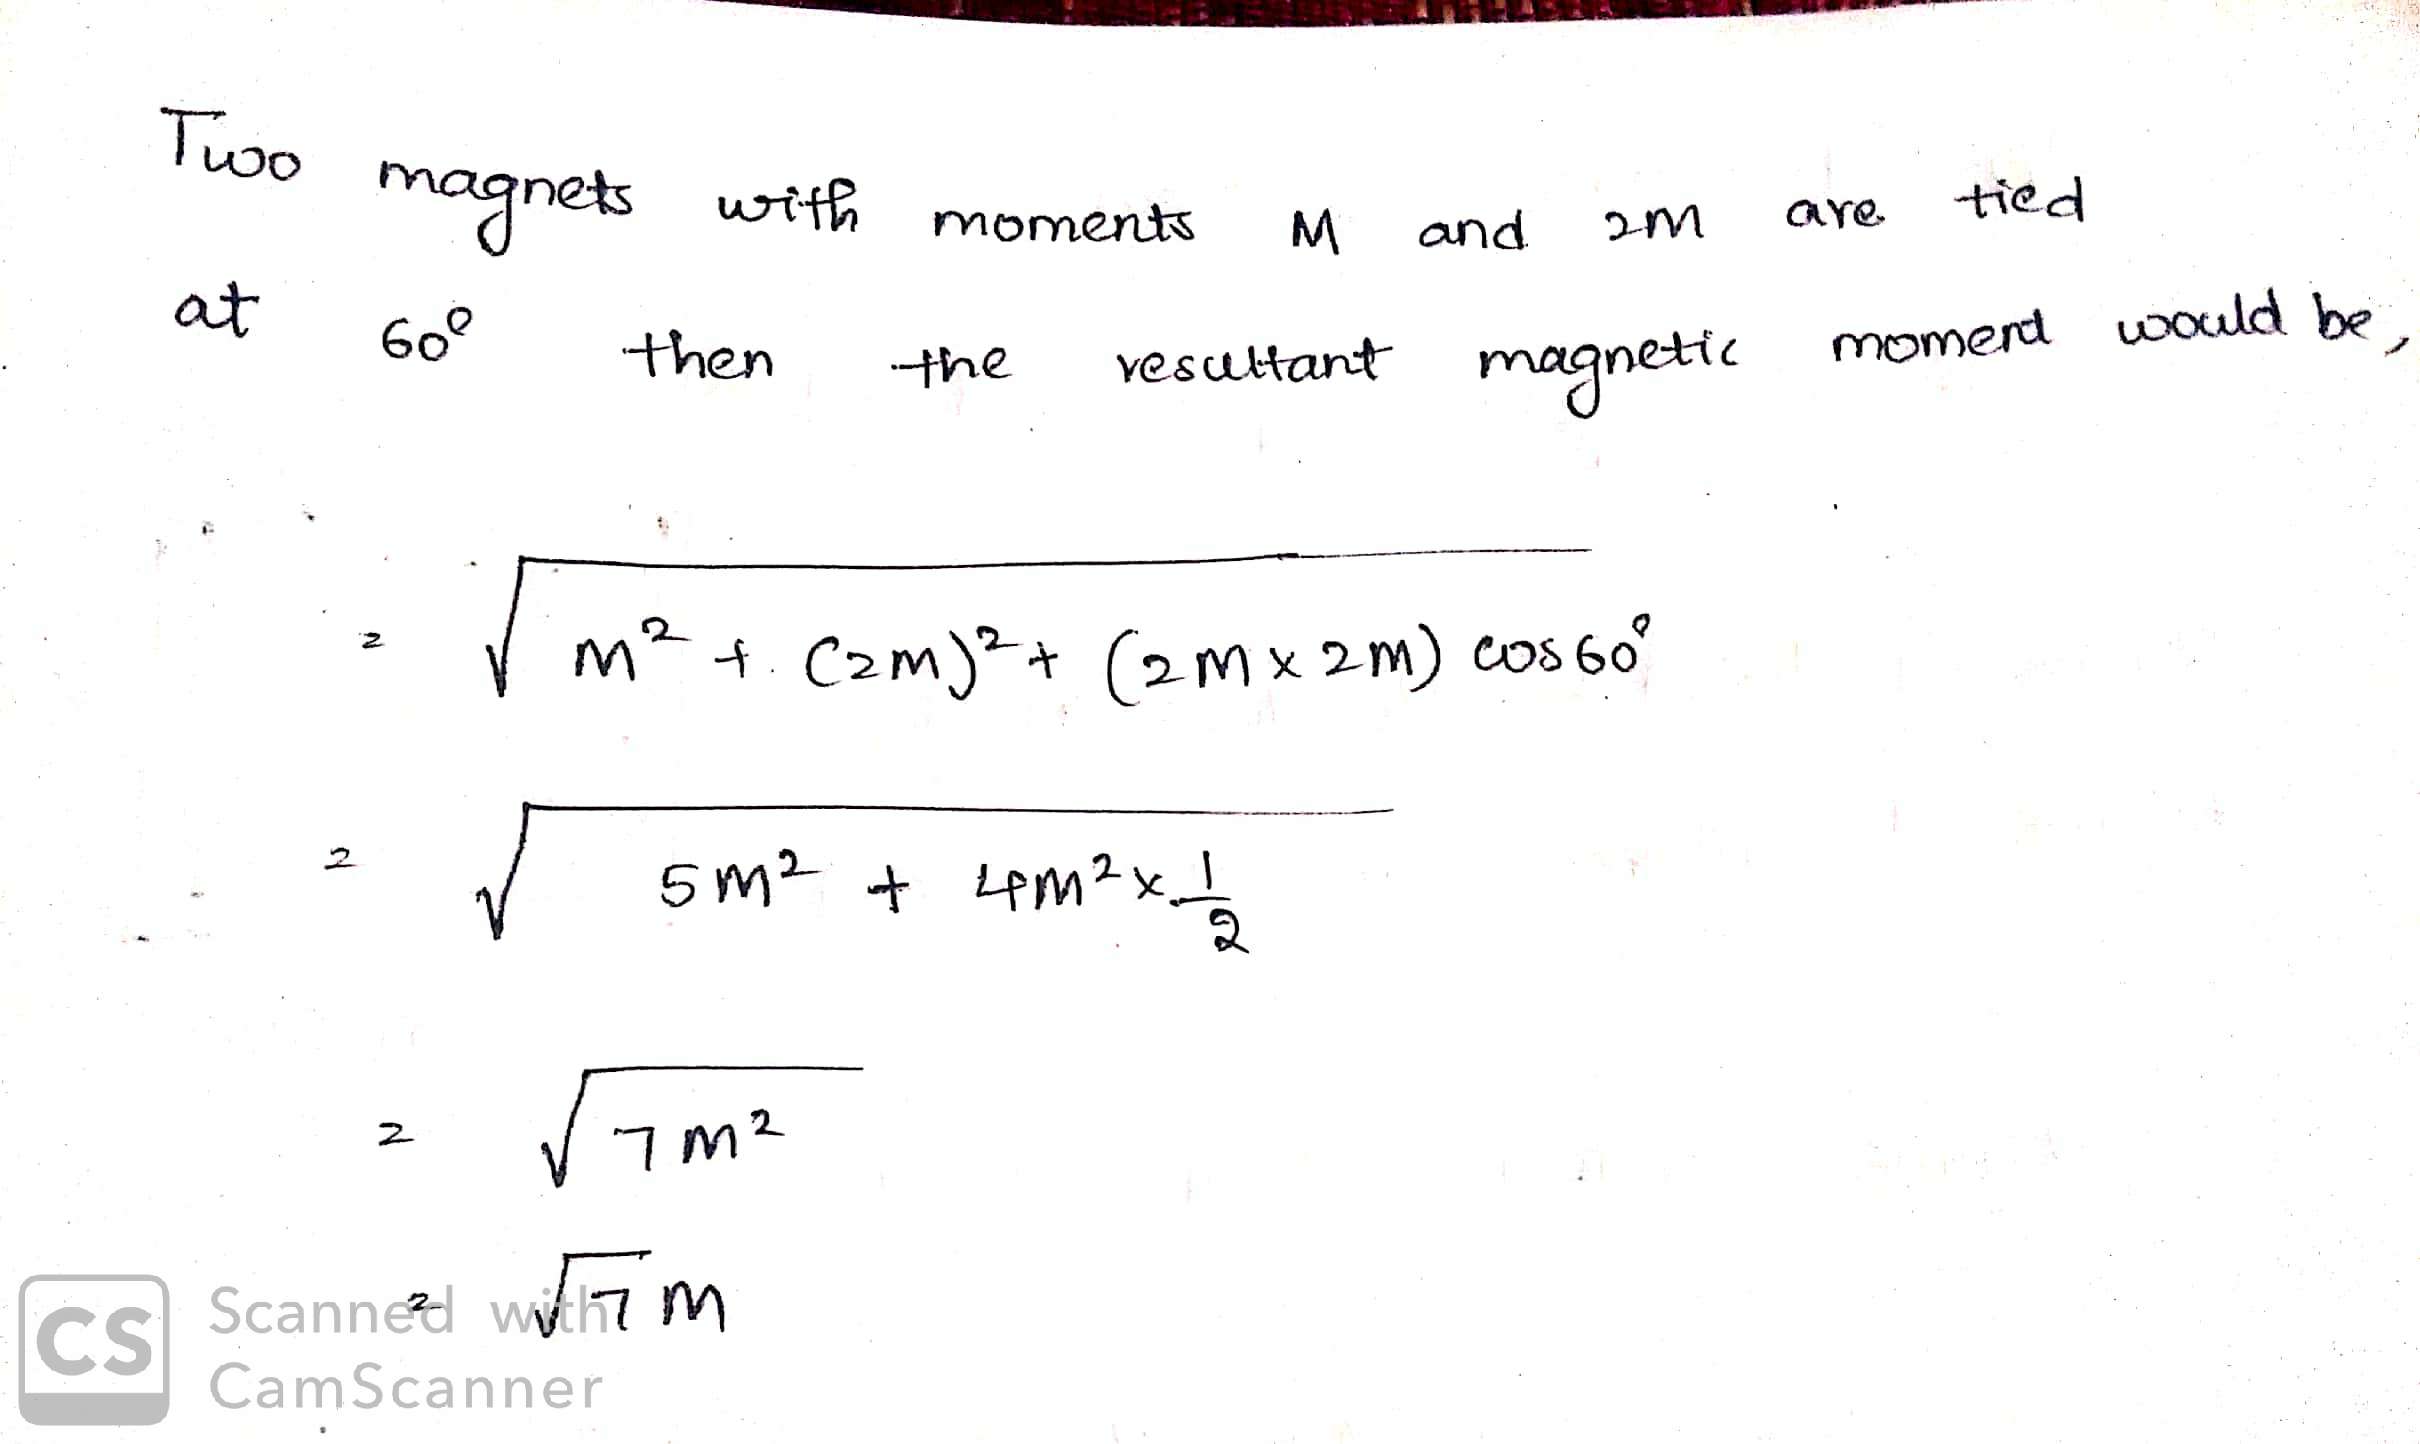 Two magnets with moments M and 2M are tied
at 60° then the resultant magnetic moment would be,
= √ M² + (2M)² + (2M x 2M) cos 60°
= √ 5M² + 4M² x 1/2
= √ 7M²
= √7 M
CS Scanned with
CamScanner